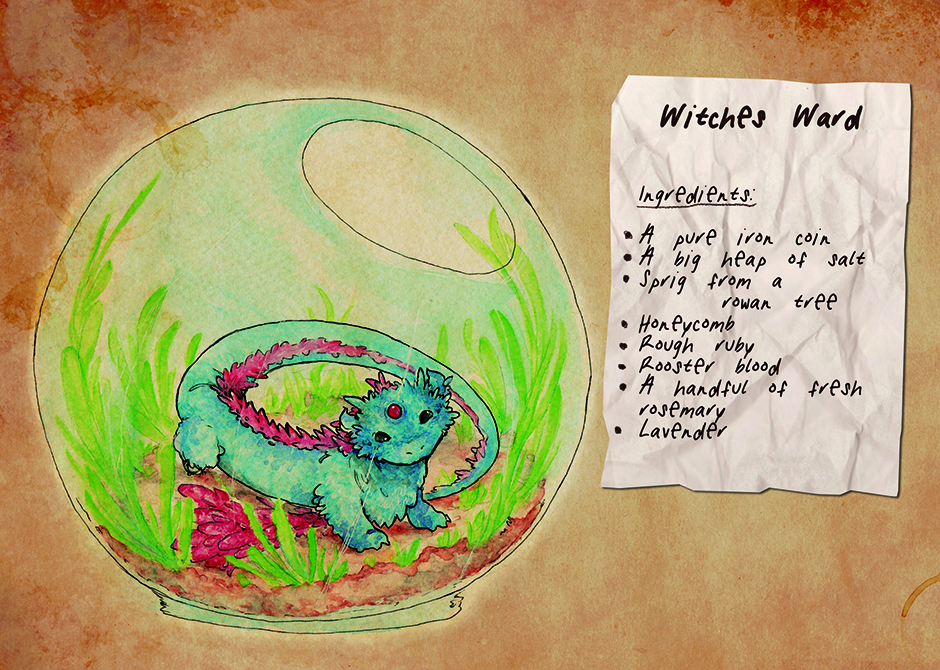 Witches Ward
Ingredients:
• A pure iron coin
• A big heap of salt
• Sprig from a
rowan tree
• Honeycomb
• Rough ruby
• Rooster blood
• A handful of fresh
rosemary
• Lavender